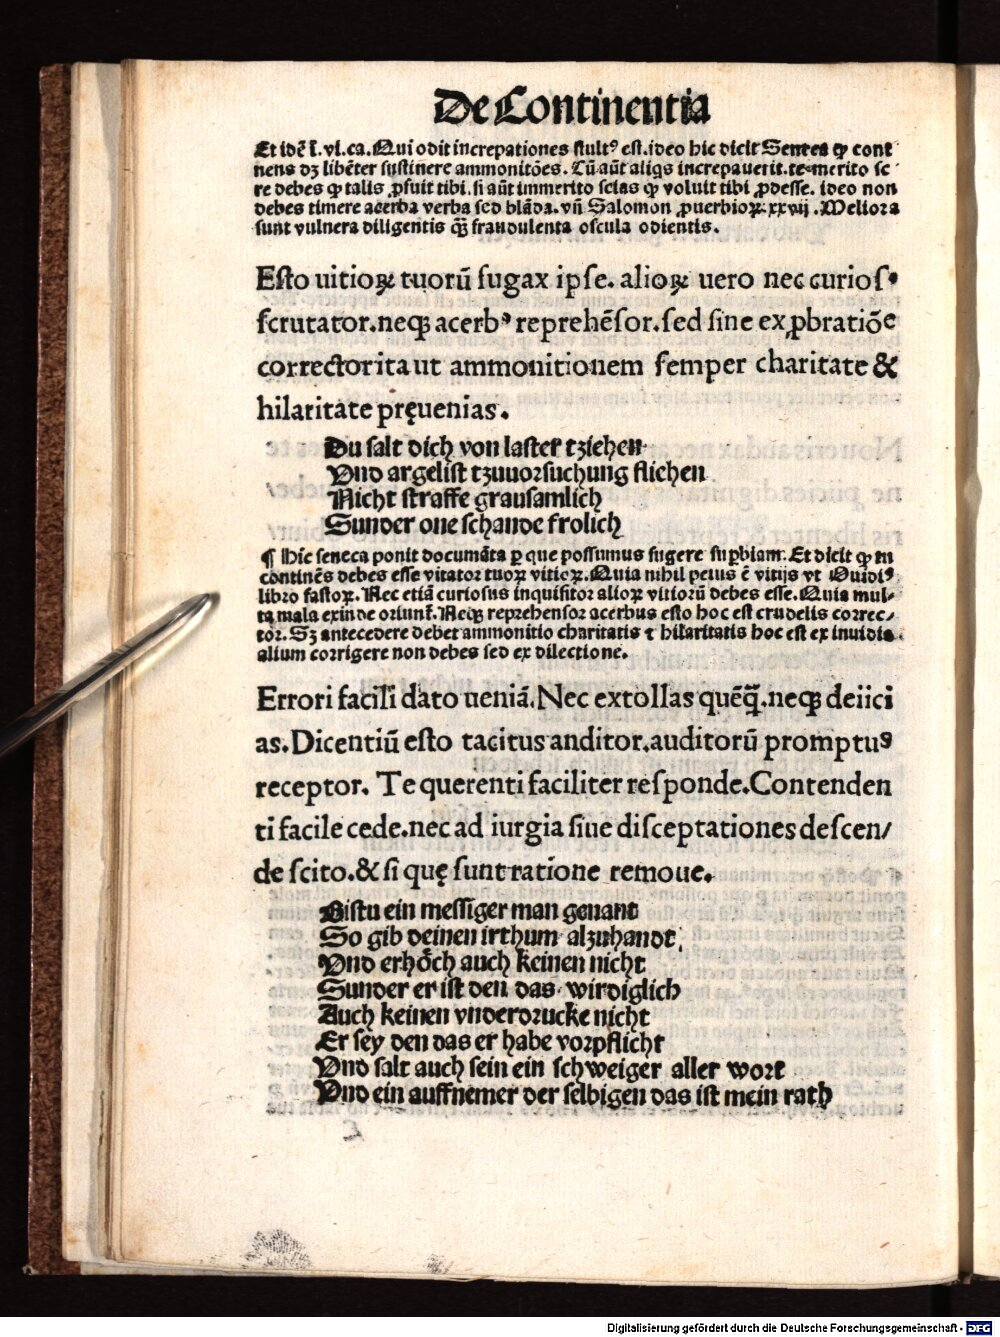 De Continentia
Et idē ī. vi. ca. Qui odit increpationes stultꝰ est. ideo hic dicit Seneca ꝙ conti
nens dꝫ libēter sustinere ammonitōes. Cū aūt aliqs increpauerit. te merito sc
re debes ꝙ talis ꝓfuit tibi. si aūt immerito scias ꝙ voluit tibi ꝓdesse. ideo non
debes timere acerba verba sed blāda. vñ Salomon ꝓuerbioꝝ. xxvij. Meliora
sunt vulnera diligentis qᷓꝫ fraudulenta oscula odientis.
Esto uitioꝝ tuorū fugax ipse. alioꝝ uero nec curiosꝰ
scrutator. neqꝫ acerbꝰ reprehēsor. sed sine exꝓbratiōe
corrector ita ut ammonitionem semper charitate &
hilaritate pręuenias.
Du salt dich von laster tziehen
Vnd argelist tzuuorsuchung fliehen
Nicht straffe grausamlich
Sunder one schande frolich
¶ Hic seneca ponit documēta ꝑ que possumus fugere suꝑbiam. Et dicit ꝙ tu
continēs debes esse vitator tuoꝝ vitioꝝ. Quia nihil peius ē vitijs vt Ouidiꝰ
libro fastoꝝ. Nec etiā curiosus inquisitor alioꝝ vitiorū debes esse. Quia mul-
ta mala exinde oriunt̄. Neqꝫ reprehensor acerbus esto hoc est crudelis correc/
tor. Sꝫ antecedere debet ammonitio charitatis ⁊ hilaritatis hoc est ex inuidia
alium corrigere non debes sed ex dilectione.
Errori facili dato ueniā. Nec extollas quēqᷓ. neqꝫ deiici
as. Dicentiū esto tacitus anditor. auditorū promptuꝰ
receptor. Te querenti faciliter responde. Contenden
ti facile cede. nec ad iurgia siue disceptationes descen/
de scito. & si quę sunt ratione remoue.
Bistu ein messiger man genant
So gib deinen irthum alzuhandt
Vnd erhöch auch keinen nicht
Sunder er ist den das wirdiglich
Auch keinen vnderdrucke nicht
Er sey den das er habe vorpflicht
Vnd salt auch sein ein schweiger aller wort
Vnd ein auffnemer der selbigen das ist mein rath
Digitalisierung gefördert durch die Deutsche Forschungsgemeinschaft - DFG